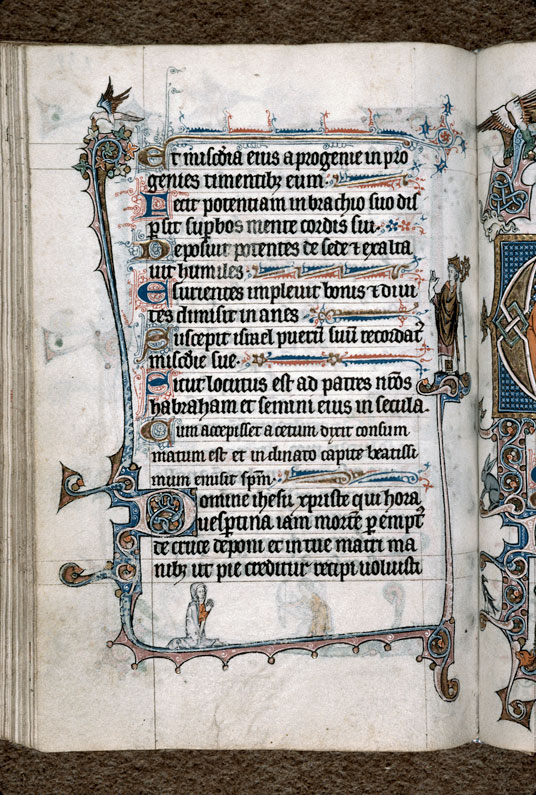 Et misc̄dia eius a progenie in pro
genies timentibꝫ eum.
Fecit potentiam in brachio suo dis
ꝑsit supbos mente cordis sui.
Deposuit potentes de sede ⁊ exalta
uit humiles.
Esurientes impleuit bonis ⁊ diui
tes dimisit inanes
Suscepit israel puerū suū recordat᷑
misc̄die sue.
Sicut locutus est ad patres nr̄os
habraham et semini eius in secula.
Cum accepisset acetum dixit consum
matum est et inclinato capite beatissi
mum emisit sp̄m.
Domine ihesu xpriste qui hora
uespertina iam mortē perempt᷑
de cruce deponi et in tue matri ma
nibꝫ ut pie creditur recipi uoluisti